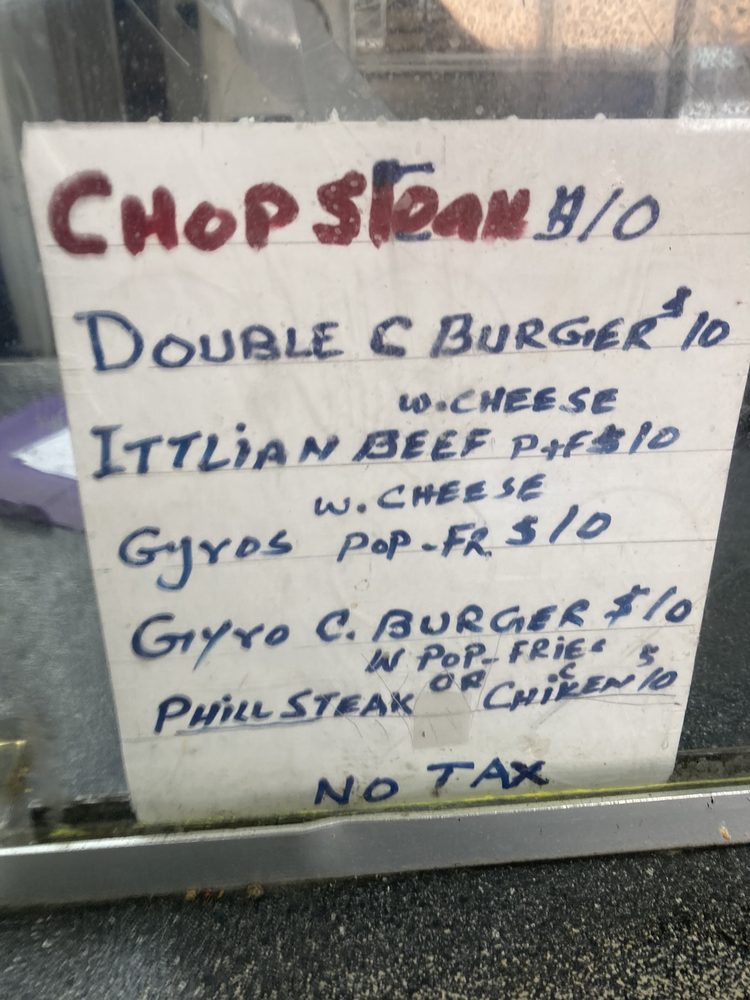 CHOP STEAK $10
DOUBLE C BURGER $10
W. CHEESE
ITTLIAN BEEF P+F $10
W. CHEESE
Gyros POP-FR. $10
Gyro C. BURGER $10
W POP-FRIES
PHILL STEAK OR CHICKEN $10
NO TAX